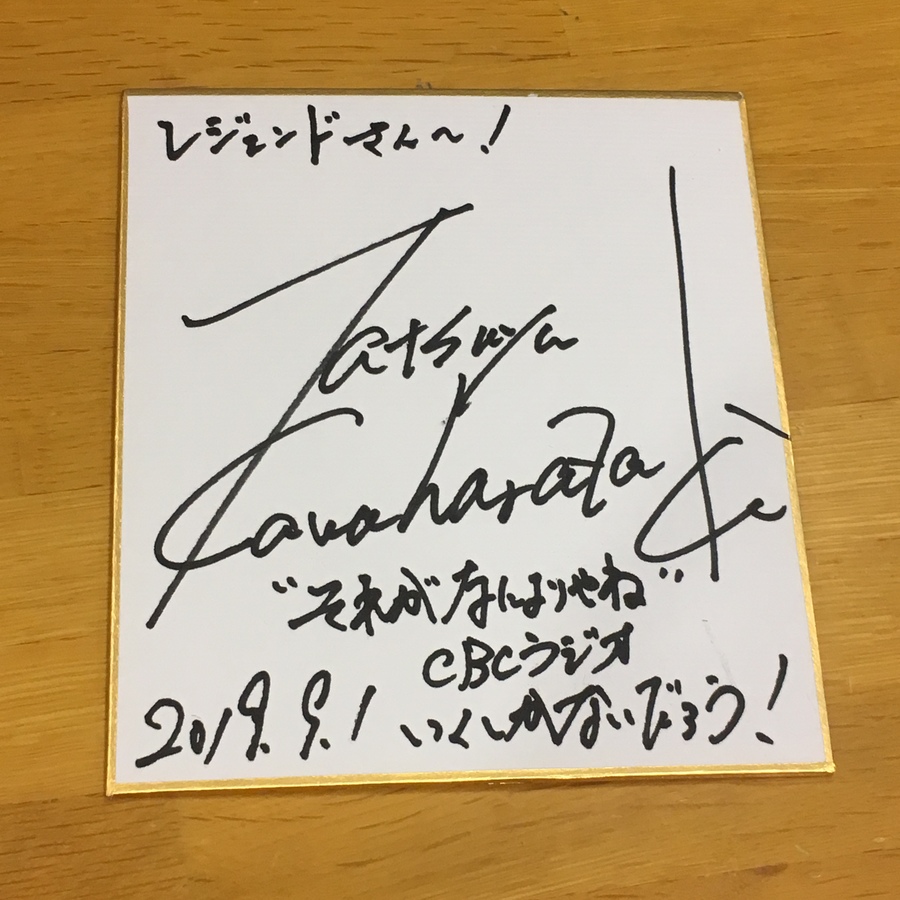 レジェンドさん〜!
Tatsuya
Kawabarazaki
"それがなによりやね"
CBCラジオ
2019.9.1 いくしかないだろう!